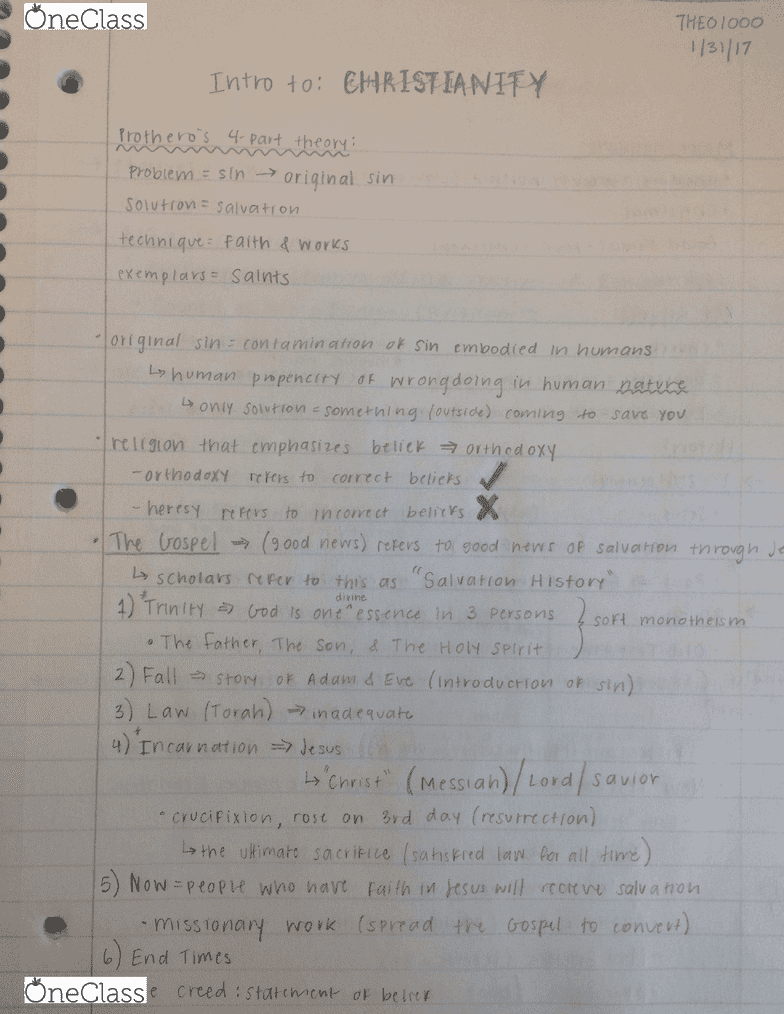 OneClass
THEO1000
1/31/17
Intro to: CHRISTIANITY
Prothero's 4-part theory:
Problem = sin → original sin
solution = salvation
technique = Faith & works
exemplars = Saints
• original sin = contamination of sin embodied in humans
↳ human propencity of wrongdoing in human nature
↳ only solution = something (outside) coming to save you
• religion that emphasizes belief ⇒ orthodoxy
- orthodoxy refers to correct beliefs ✓
- heresy refers to incorrect beliefs ✗
• The Gospel ⇒ (good news) refers to good news of salvation through Je
↳ scholars refer to this as "Salvation History"
1) *Trinity ⇒ God is one ^divine essence in 3 persons } soft monotheism
• The Father, The Son, & The Holy Spirit
2) Fall ⇒ story of Adam & Eve (introduction of sin)
3) Law (Torah) ⇒ inadequate
4) *Incarnation ⇒ Jesus
↳ "Christ" (Messiah) / Lord / savior
• crucifixion, rose on 3rd day (resurrection)
↳ the ultimate sacrifice (satisfied law for all time)
5) Now = people who have faith in Jesus will recieve salvation
• missionary work (spread the Gospel to convert)
6) End Times
OneClass
e creed: statement of belief